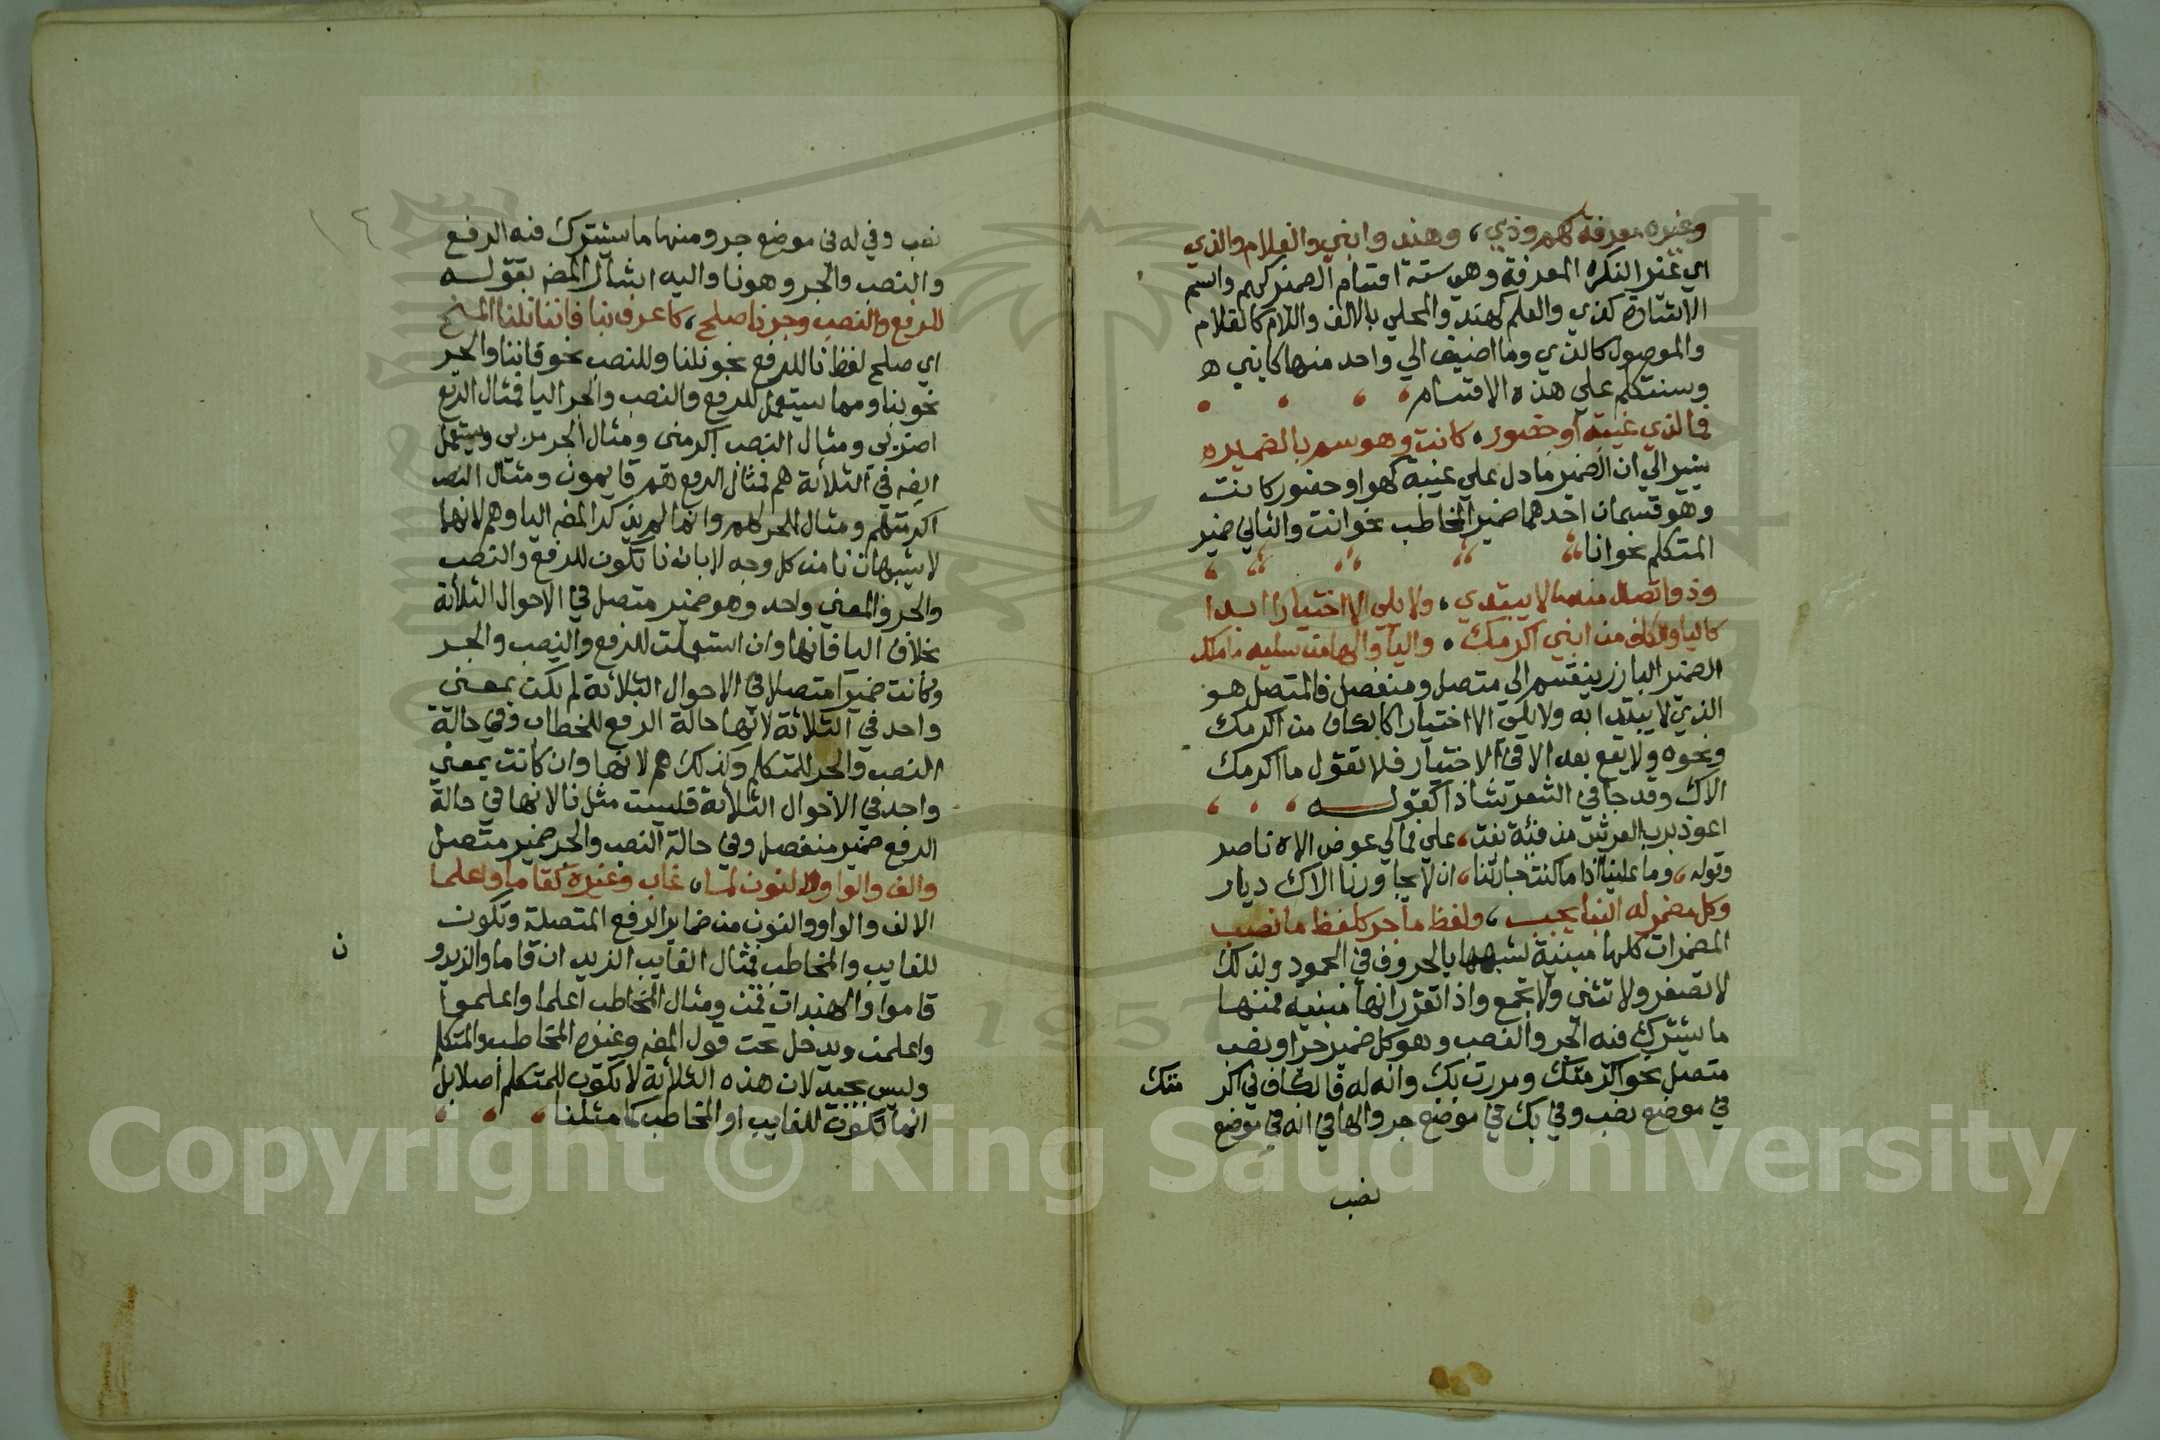 وغيره معرفة كهم وذي، وهند وابني والغلام والذي
اي غير النكرة المعرفة وهي ستة اقسام الضمير كهم واسم
الاشارة كذي والعلم كهند والمحلي بالالف واللام كالغلام
والموصول كالذي وما اضيف الي واحد منها كابني ه
وسنتكلم علي هذه الاقسام
فما لذي غيبة او حضور، كانت وهو سم بالضميره
يشير الي ان الضمير ما دل علي غيبة كهو او حضور كانت
وهو قسمان احدهما ضمير المخاطب نحو انت والثاني ضمير
المتكلم نحو انا
وذو اتصال منه ما لا يبتدي، ولا يلي الا اختيارا ابدا
كاليا والكاف من ابني اكرمك، واليا والها من سليه ما ملك
الضمير البارز ينقسم الي متصل ومنفصل فالمتصل هو
الذي لا يبتدا به ولا يلي الا اختيارا كالكاف من اكرمك
ونحوه ولا يقع بعد الا في الاختيار فلا تقول ما اكرمك
الاك وقد جا في الشعر شاذا كقوله
اعوذ برب العرش من فئة بغت، علي فما لي عوض الاه ناصر
وقوله، وما علينا اذا ما كنت جارتنا، ان لا يجاورنا الاك ديار
وكل مضمر له البنا يجب، ولفظ ما جر كلفظ ما نصب
المضمرات كلها مبنية لشبهها بالحروف في الجمود ولذلك
لا تصغر ولا تثني ولا تجمع واذا تقرر انها مبنية فمنها
ما يشترك فيه الجر والنصب وهو كل ضمير جر او نصب
متصل نحو اكرمتك ومررت بك وانه له فالكاف في اكر
متك
في موضع نصب وفي بك في موضع جر والها في انه في موضع
نصب
نصب وفي له في موضع جر ومنها ما يشترك فيه الرفع
والنصب والجر وهو نا واليه اشار المصہ بقوله
للرفع والنصب وجر نا صلح، كاعرف بنا فاننا نلنا المنح
اي صلح لفظ نا للرفع نحو نلنا وللنصب نحو فاننا والجر
نحو بنا ومما يستعمل للرفع والنصب والجر اليا فمثال الرفع
اضربي ومثال النصب اكرمني ومثال الجر مر بي ويستعمل
ايضہ في الثلاثة هم فمثال الرفع هم قايمون ومثال النصب
اكرمتهم ومثال الجر لهم وانما لم يذكر المصہ اليا وهم لانهما
لا يشبهان نا من كل وجه لان نا تكون للرفع والنصب
والجر والمعني واحد وهو ضمير متصل في الاحوال الثلاثة
بخلاف اليا فانها وان استعملت للرفع والنصب والجر
وكانت ضميرا متصلا في الاحوال الثلاثة لم يكن بمعني
واحد في الثلاثة لانها حالة الرفع للخطاب وفي حالة
النصب والجر للمتكلم وكذلك هم لانها وان كانت بمعني
واحد في الاحوال الثلاثة فليست مثل نا لانها في حالة
الرفع ضمير منفصل وفي حالة النصب والجر ضمير متصل
والف والواو والنون لما، غاب وغيره كقاما واعلما
الالف والواو والنون من ضماير الرفع المتصلة وتكون
ن
للغايب والمخاطب فمثال الغايب الزيدان قاما والزيدو
قاموا والهندات قمن ومثال المخاطب اعلما واعلموا
واعلمن ويدخل تحت قول المصہ وغيره المخاطب والمتكلم
وليس بجيد لان هذه الثلاثة لا تكون للمتكلم اصلا بل
انما تكون للغايب او المخاطب كما مثلنا
Copyright © King Saud University
1957